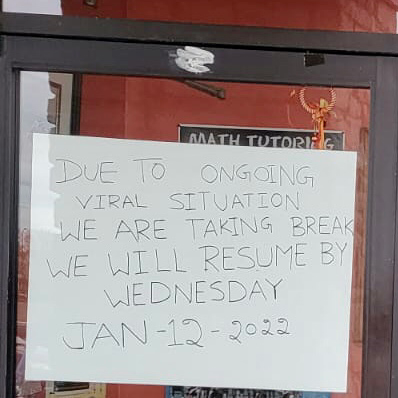 MATH TUTORING
DUE TO ONGOING
VIRAL SITUATION
WE ARE TAKING BREAK
WE WILL RESUME BY
WEDNESDAY
JAN-12-2022